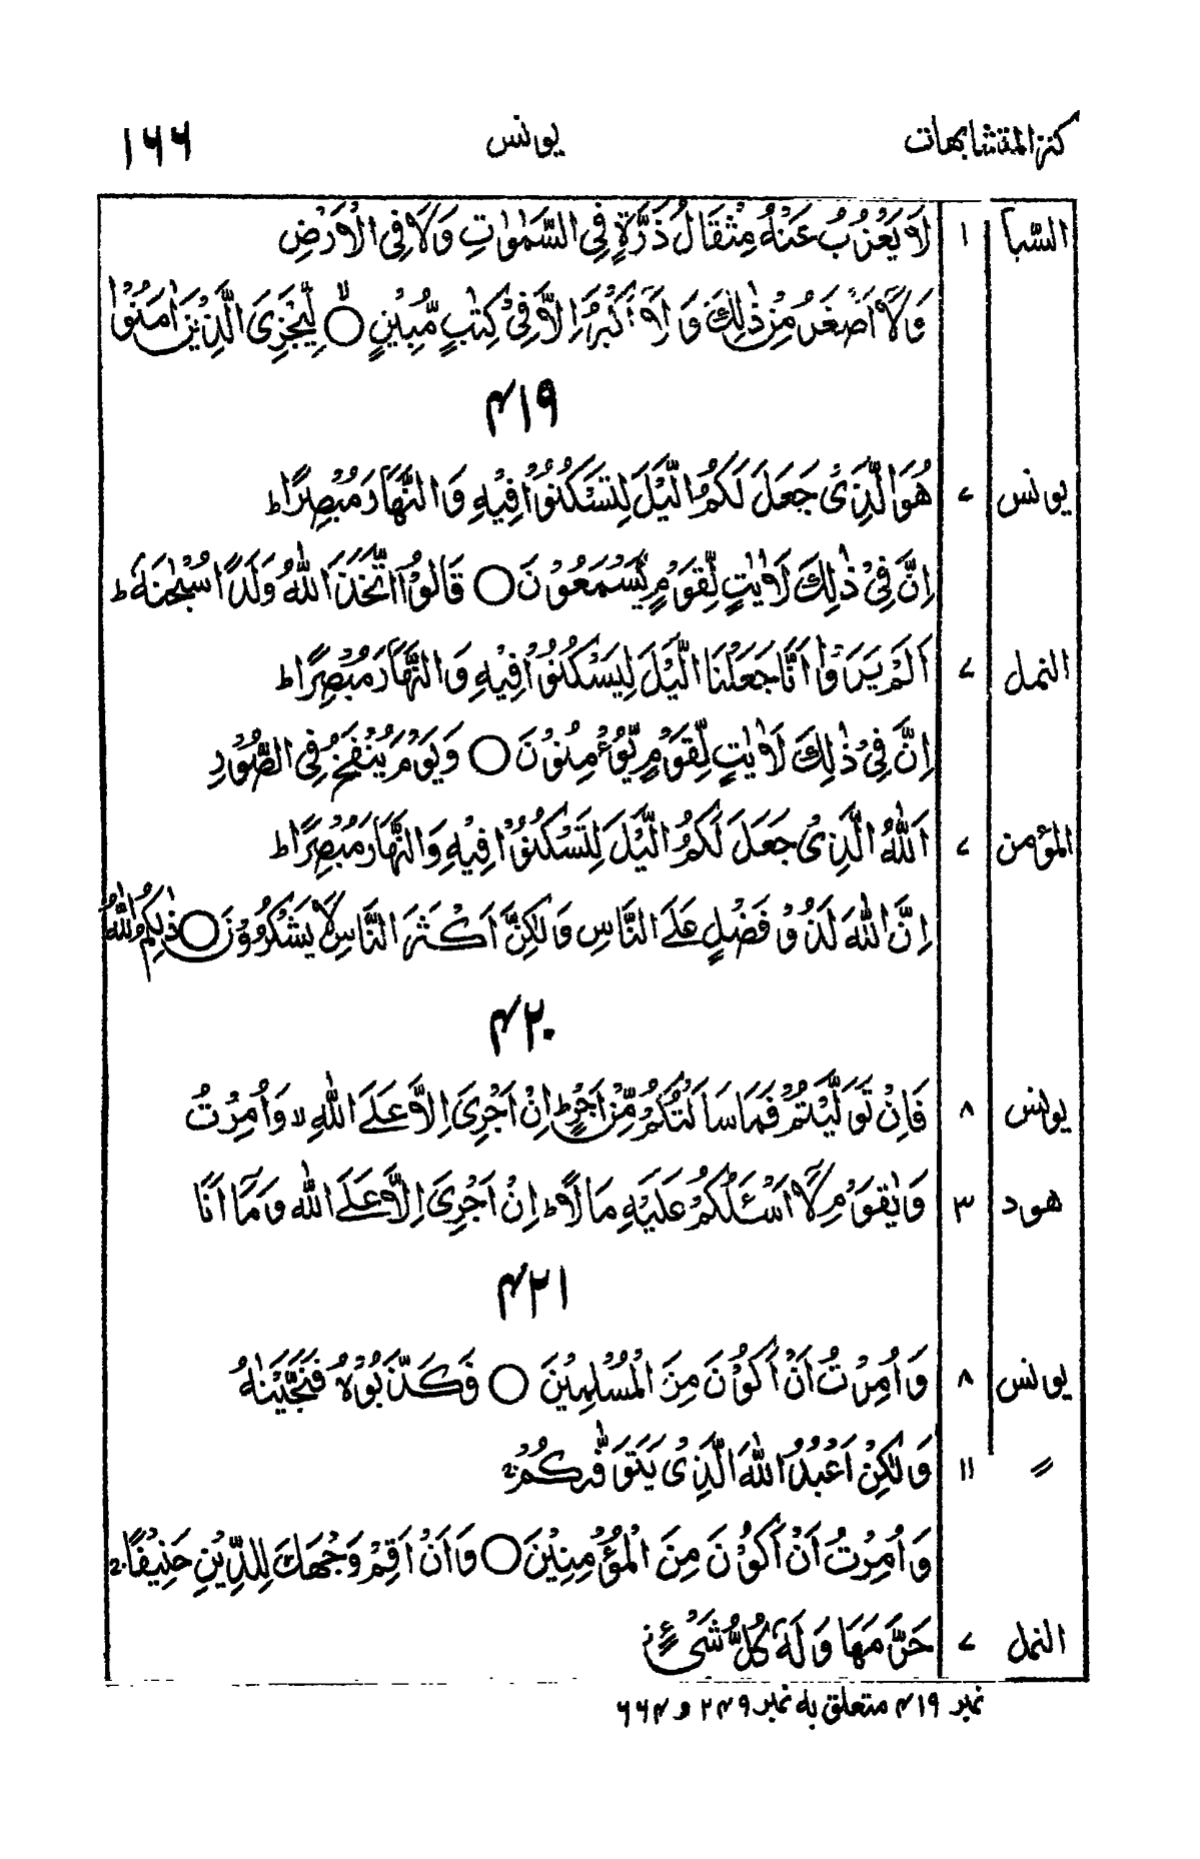 كنز المتشابهات يونس ١٦٦
السبأ ١ لَا يَعْزُبُ عَنْهُ مِثْقَالُ ذَرَّةٍ فِي السَّمٰوٰتِ وَلَا فِي الْاَرْضِ
وَلَآ اَصْغَرُ مِنْ ذٰلِكَ وَلَآ اَكْبَرُ اِلَّا فِيْ كِتٰبٍ مُّبِيْنٍ ○ لِّيَجْزِيَ الَّذِيْنَ اٰمَنُوْا
۴۱۹
يونس ۷ هُوَ الَّذِيْ جَعَلَ لَكُمُ الَّيْلَ لِتَسْكُنُوْا فِيْهِ وَالنَّهَارَ مُبْصِرًا ؕ
اِنَّ فِيْ ذٰلِكَ لَاٰيٰتٍ لِّقَوْمٍ يَّسْمَعُوْنَ ○ قَالُوْا اتَّخَذَ اللّٰهُ وَلَدًا سُبْحٰنَهٗ ؕ
النمل ۷ اَلَمْ يَرَوْا اَنَّا جَعَلْنَا الَّيْلَ لِيَسْكُنُوْا فِيْهِ وَالنَّهَارَ مُبْصِرًا ؕ
اِنَّ فِيْ ذٰلِكَ لَاٰيٰتٍ لِّقَوْمٍ يُّؤْمِنُوْنَ ○ وَيَوْمَ يُنْفَخُ فِي الصُّوْرِ
المؤمن ۷ اَللّٰهُ الَّذِيْ جَعَلَ لَكُمُ الَّيْلَ لِتَسْكُنُوْا فِيْهِ وَالنَّهَارَ مُبْصِرًا ؕ
اِنَّ اللّٰهَ لَذُوْ فَضْلٍ عَلَى النَّاسِ وَلٰكِنَّ اَكْثَرَ النَّاسِ لَا يَشْكُرُوْنَ ○ ذٰلِكُمُ اللّٰهُ
۴۲۰
يونس ۸ فَاِنْ تَوَلَّيْتُمْ فَمَا سَاَلْتُكُمْ مِّنْ اَجْرٍ ؕ اِنْ اَجْرِيَ اِلَّا عَلَى اللّٰهِ ۙ وَاُمِرْتُ
هود ۳ وَيٰقَوْمِ لَآ اَسْـَٔلُكُمْ عَلَيْهِ مَالًا ؕ اِنْ اَجْرِيَ اِلَّا عَلَى اللّٰهِ وَمَآ اَنَا
۴۲۱
يونس ۸ وَاُمِرْتُ اَنْ اَكُوْنَ مِنَ الْمُسْلِمِيْنَ ○ فَكَذَّبُوْهُ فَنَجَّيْنٰهُ
〃 ۱۱ وَلٰكِنْ اَعْبُدُ اللّٰهَ الَّذِيْ يَتَوَفّٰىكُمْ ۚ
وَاُمِرْتُ اَنْ اَكُوْنَ مِنَ الْمُؤْمِنِيْنَ ○ وَاَنْ اَقِمْ وَجْهَكَ لِلدِّيْنِ حَنِيْفًا ۚ
النمل ۷ حَرَّمَهَا وَلَهٗ كُلُّ شَيْءٍ ز
نمبر ۴۱۹ متعلق به نمبر ۲۴۹ و ۶۶۴